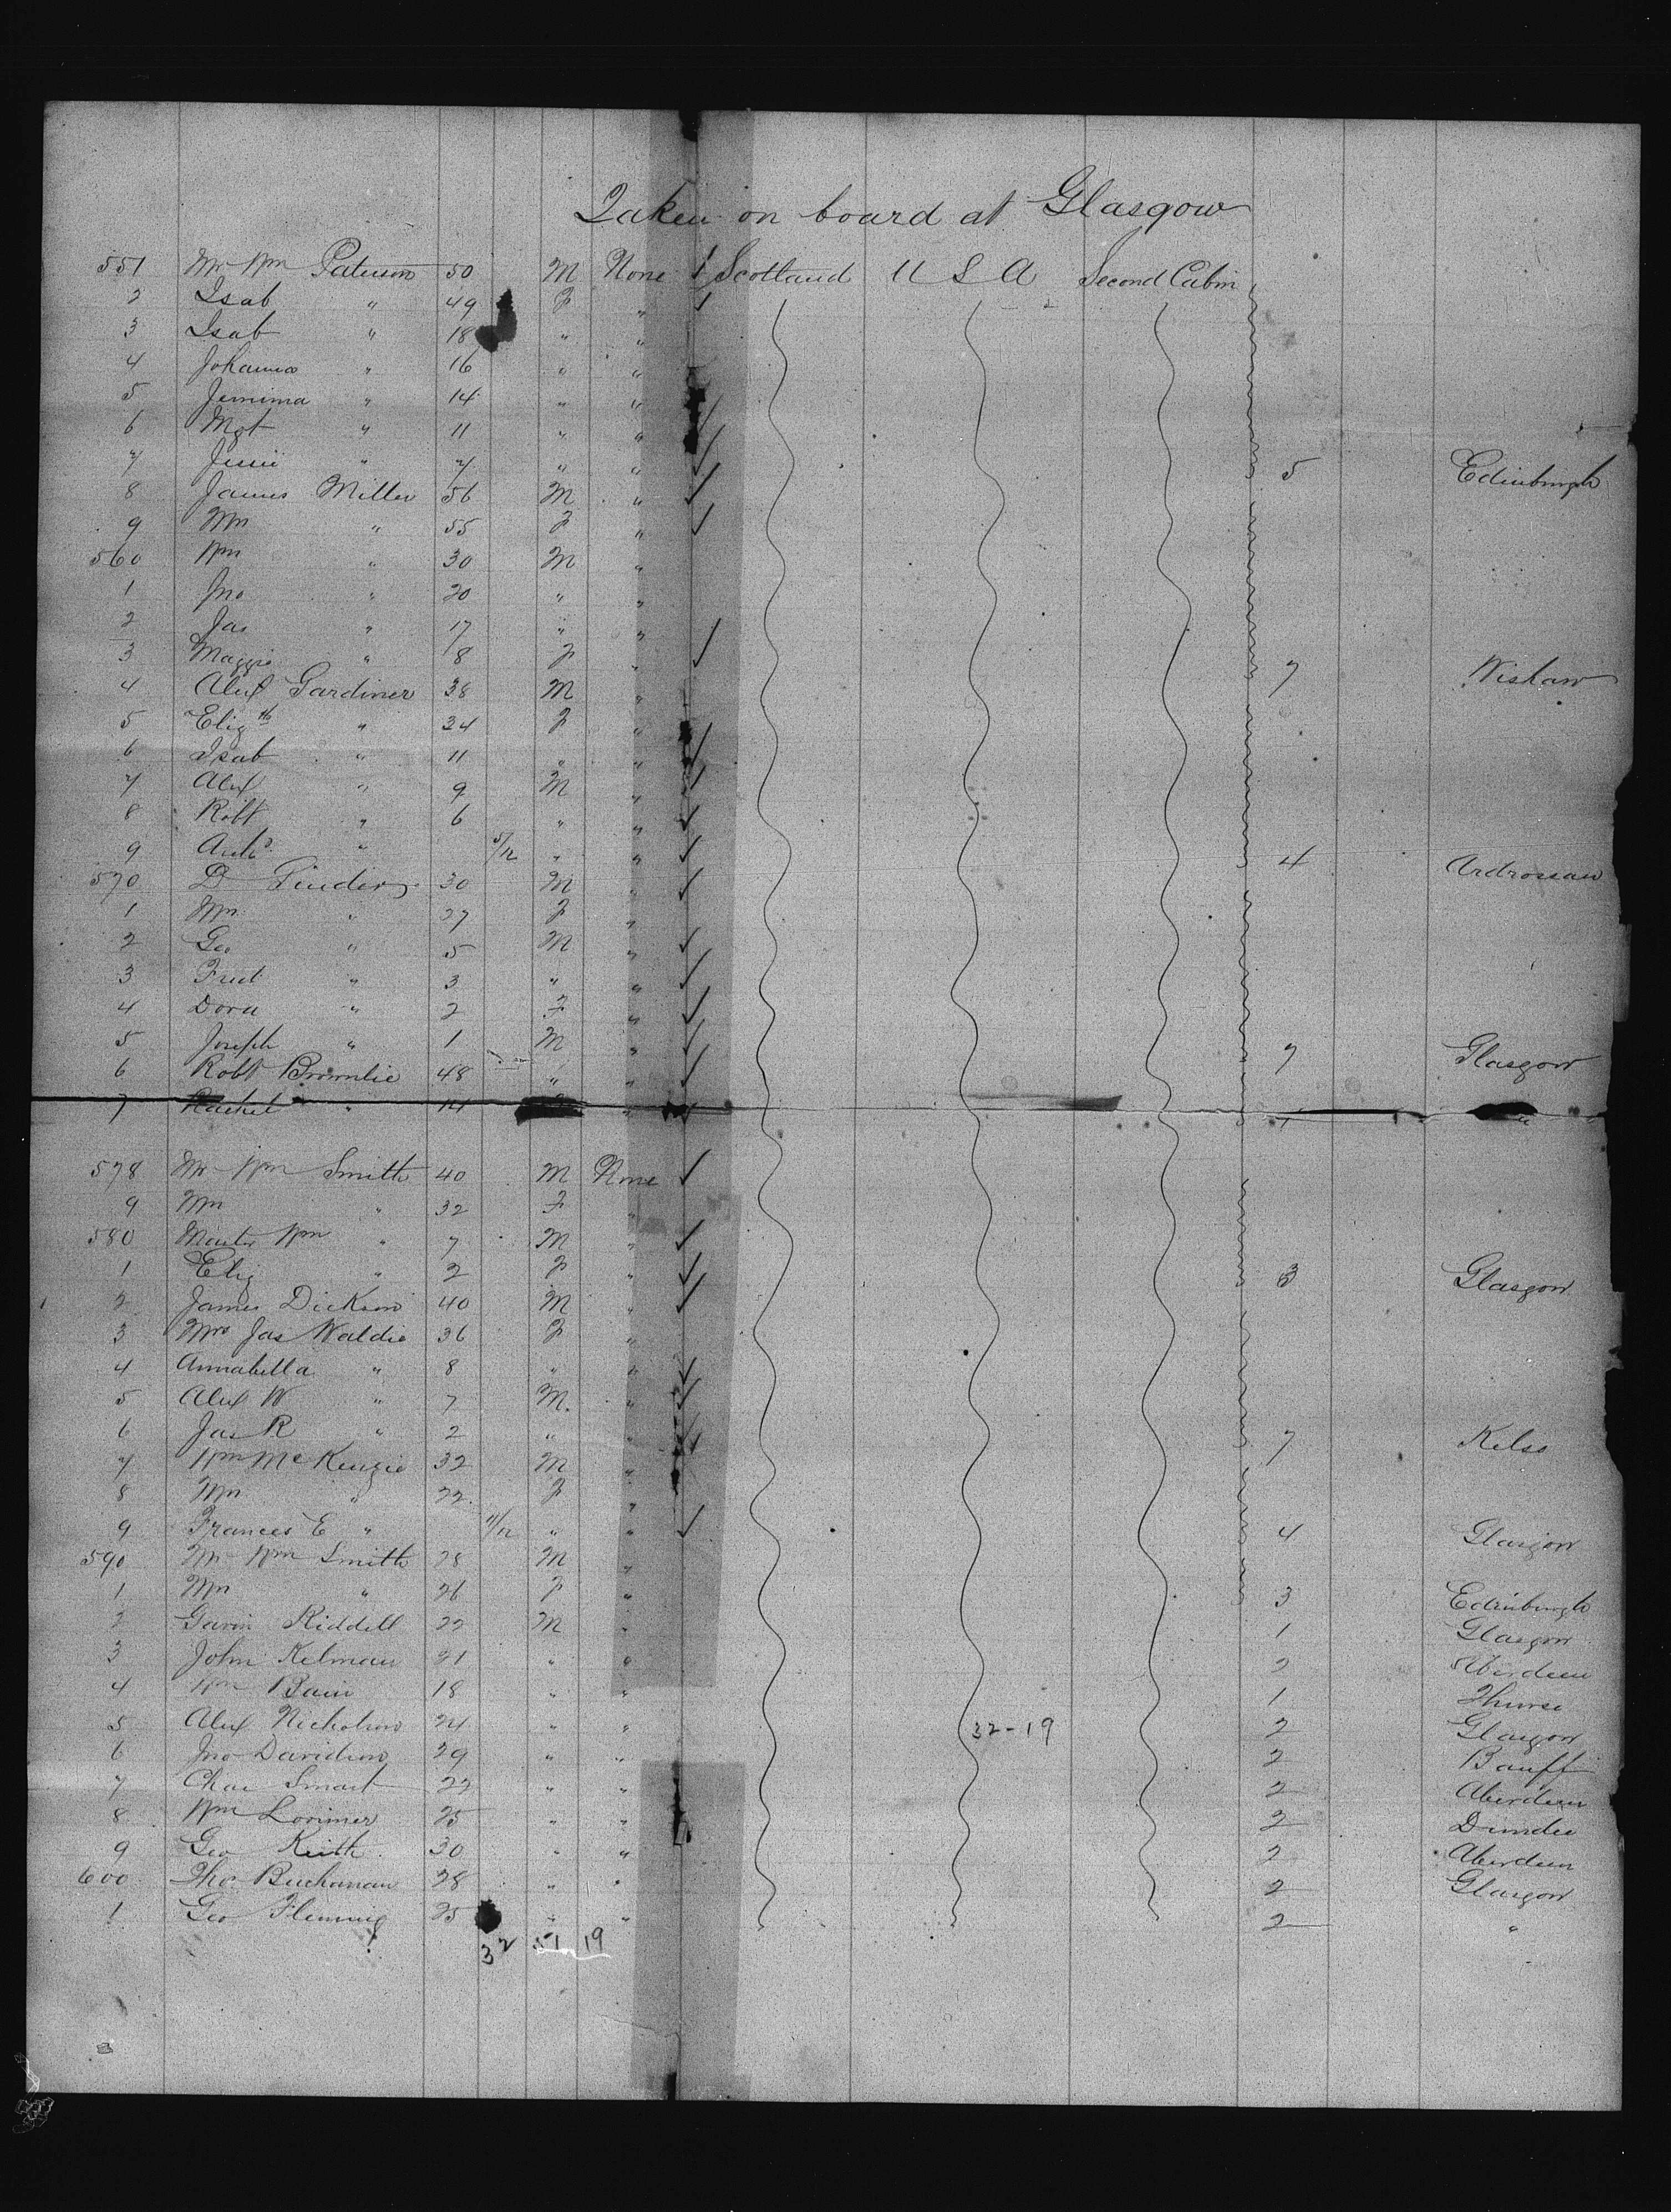 Taken on board at Glasgow
551 Mr Wm Paterson 50 M None 1 Scotland U S A Second Cabin
2 Isab " 49 F "
3 Isab " 18 " "
4 Johanna " 16 " "
5 Jemima " 14 " "
6 Mgt " 11 " "
7 Jessie " 7 " " 5 Edinburgh
8 James Miller 56 M "
9 Mrs " 55 F "
560 Wm " 30 M "
1 Jno " 20 " "
2 Jas " 17 " "
3 Maggie " 8 F " 7 Wishaw
4 Alex Gardiner 38 M "
5 Elizth " 34 F "
6 Isab " 11 " "
7 Alex " 9 M "
8 Robt " 6 " "
9 Archd " 5/12 " " 4 Ardrossan
570 D 30 M "
1 Mrs " 27 F "
2 Geo " 5 M "
3 Fred " 3 " "
4 Dora " 2 F "
5 Joseph " 1 M " 7 Glasgow
6 Robt Brownlie 48 " "
7 Rachel " "
578 Mr Wm Smith 40 M None
9 Mrs " 32 F "
580 Master Wm " 7 M "
1 Eliz " 2 F " 3 Glasgow
2 James Dickson 40 M "
3 Mrs Jas Waldie 36 F "
4 Annabella " 8 " "
5 Alex W " 7 M. "
6 Jas R " 2 " " 7 Kelso
7 Wm McKenzie 32 M "
8 Mrs " 22 F "
9 Frances E " 11/12 " " 4 Glasgow
590 Mr Wm Smith 28 M "
1 Mrs " 26 F " 3 Edinburgh
2 Gavin Riddell 22 M " 1 Glasgow
3 John Kelman 21 " " 2 Aberdeen
4 Wm Bain 18 " " 1 Thurso
5 Alex Nicholson 24 " " 32-19 2 Glasgow
6 Jno Davidson 29 " " 2 Banff
7 Chas Smart 22 " " 2 Aberdeen
8 Wm Lorimer 25 " " 2 Dundee
9 Geo Keith 30 " " 2 Aberdeen
600 Thos Buchanan 28 " " 2 Glasgow
1 Geo Fleming 25 " " 2 "
32 51 19